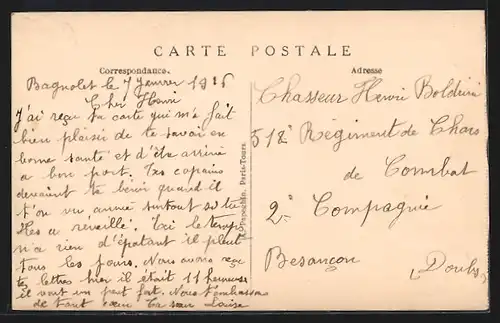 CARTE POSTALE
Correspondance.
Adresse
Bagnolet le 7 Janvier 1926
Cher Henri
J'ai reçu ta carte qui m'a fait
bien plaisir de te savoir en
bonne santé et d'être arrivé
à bon port. Tes copains
devaient te bénir quand il
t'on vu arrivé surtout si tu
les a reveillé. Ici le temps
n'a rien d'épatant il pleut
tous les jours. Nous avons reçu
ta lettre hier il était 11 heures
il vont un peu fort. Nous t'embrassons
de tout cœur ta sœur Louise
Chasseur Henri
512e Régiment de Chars
de Combat
2e Compagnie
Besançon
(Doubs)
Papeghin, Paris-Tours.